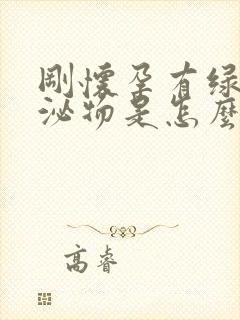 剛懷孕有綠
泌物是怎麼
高睿